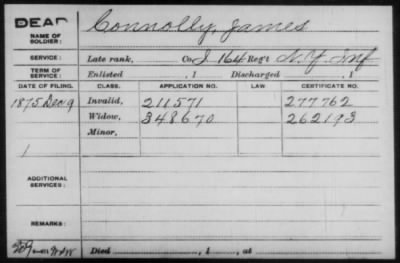 DEAD
Connolly, James
NAME OF SOLDIER:
SERVICE: Late rank, Co. I 164 Reg't N.Y. Inf
TERM OF SERVICE: Enlisted , 1 Discharged , 1
DATE OF FILING. CLASS. APPLICATION NO. LAW CERTIFICATE NO.
1875 Dec 9 Invalid, 211571 277762
Widow, 348670 262193
Minor,
1
ADDITIONAL SERVICES:
REMARKS:
Died , 1 , at